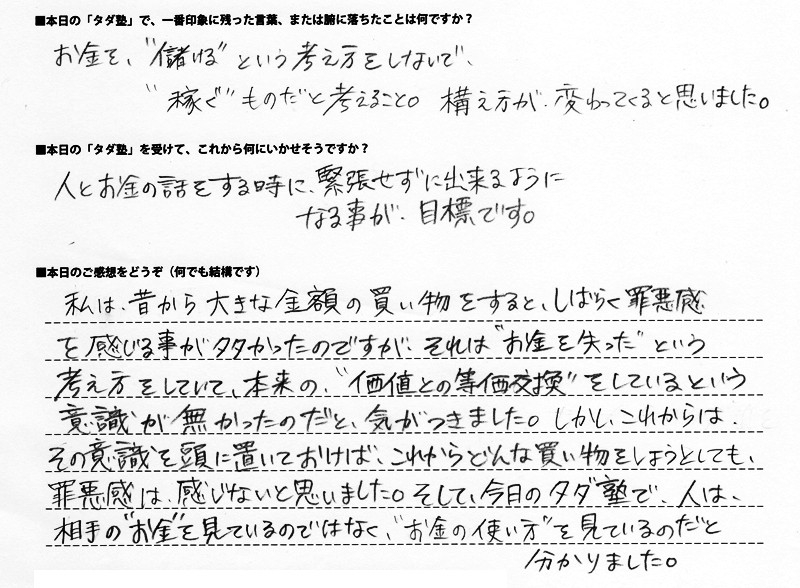 ■本日の「タダ塾」で、一番印象に残った言葉、または腑に落ちたことは何ですか？
お金を、"儲ける"という考え方をしないで、
"稼ぐ"ものだと考えること。構え方が、変わってくると思いました。
■本日の「タダ塾」を受けて、これから何にいかせそうですか？
人とお金の話をする時に、緊張せずに出来るように
なる事が、目標です。
■本日のご感想をどうぞ（何でも結構です）
私は、昔から大きな金額の買い物をすると、しばらく罪悪感
を感じる事が多かったのですが、それは"お金を失った"という
考え方をしていて、本来の、"価値との等価交換"をしているという
意識が無かったのだと、気がつきました。しかし、これからは、
その意識を頭に置いておけば、これからどんな買い物をしようとしても、
罪悪感は、感じないと思いました。そして、今日のタダ塾で、人は、
相手の"お金"を見ているのではなく、"お金の使い方"を見ているのだと
分かりました。